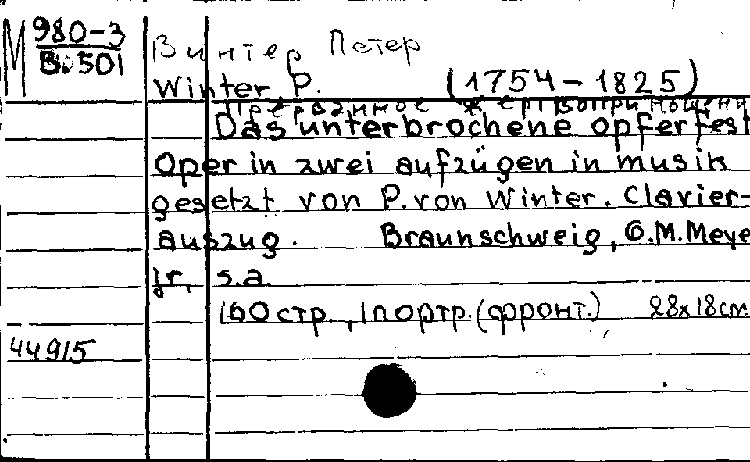 М 980-3
В. 501
Винтер Петер
Winter, P. (1754-1825)
Прерванное жертвоприношени
Das unterbrochene opferfest
Oper in zwei aufzügen in musik
gesetzt von P. von Winter. Clavier-
auszug. Braunschweig, G.M. Meye
jr, s.a.
160 стр., 1 портр. (фронт.) 28x18 см.
44915